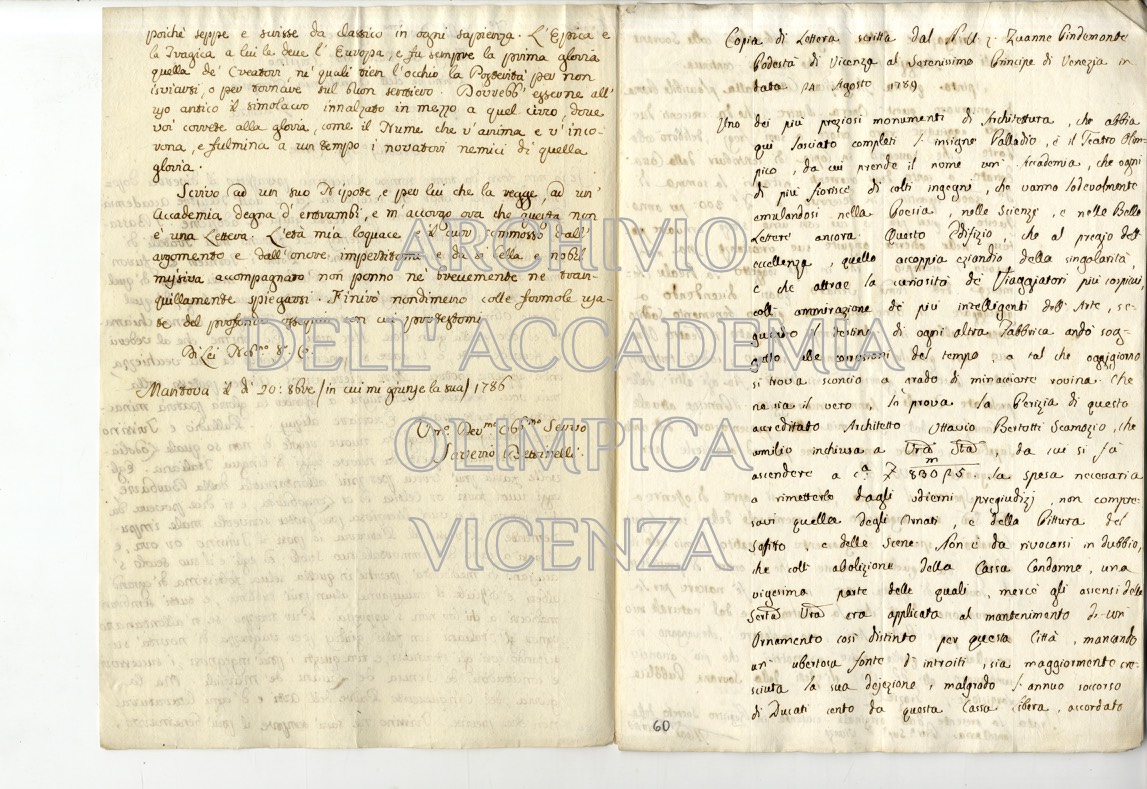 poichè seppe e scrisse da classico in ogni sapienza. L'Epica e
la Tragica a lui le deve l'Europa, e fu sempre la prima gloria
quella de' Creatori, ne' quali tien l'occhio la Posterità per non
isviarsi, o per tornare sul buon sentiero. Dovrebb' esserne all'
uso antico il simolacro innalzato in mezzo a quel circo, dove
voi correte alla gloria, come il Nume che v'anima e v'inco-
rona, e fulmina a un tempo i novatori nemici di quella
gloria.
Scrivo ad un suo Nipote, e per lui che la regge, ad un'
Accademia degna d'entrambi, e m'accorgo ora che questa non
è una Lettera. L'età mia loquace e il cuor commosso dall'
argomento e dall'onore impartitomi e da sì bella e nobil
accompagnato non ponno nè brevemente nè tran-
quillamente spiegarsi. Finirò nondimeno colle formole usa-
te del profondo ossequio con cui protestomi
Di Lei Nob.mo S.r C.
Mantova il dì 20: 8bre (in cui mi giunse la sua) 1786
Um.o Dev.mo Obb.mo Servo
Saverio Bettinelli.
Copia di Lettera scritta dal N. U. Zuanne Pindemonte
Podestà di Vicenza al Serenissimo Principe di Venezia in
data 14 Agosto 1789
Uno dei più preziosi monumenti di Architettura, che abbia
qui lasciato completi l'insigne Palladio, è il Teatro Olim-
pico, da cui prende il nome un' Accademia, che ogni
dì più fiorisce di colti ingegni, che vanno lodevolmente
emulandosi nella Poesia, nelle Scienze, e nelle Belle
Lettere ancora. Questo Edifizio che al pregio dell'
eccellenza, quello accoppia eziandio della singolarità,
e che attrae la curiosità de' Viaggiatori più cospicui,
coll' ammirazione de' più intelligenti dell'Arte, se-
guendo il destino di ogni altra Fabbrica andò sog-
getto alle corrosioni del tempo, a tal che oggigiorno
si trova sconcio a grado di minacciare rovina. Che
ne sia il vero, lo prova la Perizia di questo
accreditato Architetto Ottavio Bertotti Scamozio, che
umilio inchiusa a Vrã Stã, da cui si fà
ascendere a c.a la spesa necessaria
a rimetterlo dagli odierni pregiudizj, non compre-
savi quella degli Ornati, e della Pittura del
Sofitto, e delle Scene. Non è da rivocarsi in dubbio,
che coll' abolizione della Cassa Condanne, una
vigesima parte delle quali, mercè gli assensi della
Sertà Vrã era applicata al mantenimento di un'
Ornamento così distinto per questa Città, mancando
un' ubertosa fonte d'introiti, sia maggiormente cre-
sciuta la sua dejezione, malgrado l'annuo soccorso
di Ducati cento da questa Cassa Civera, accordato
60
ARCHIVIO
DELL'ACCADEMIA
OLIMPICA
VICENZA